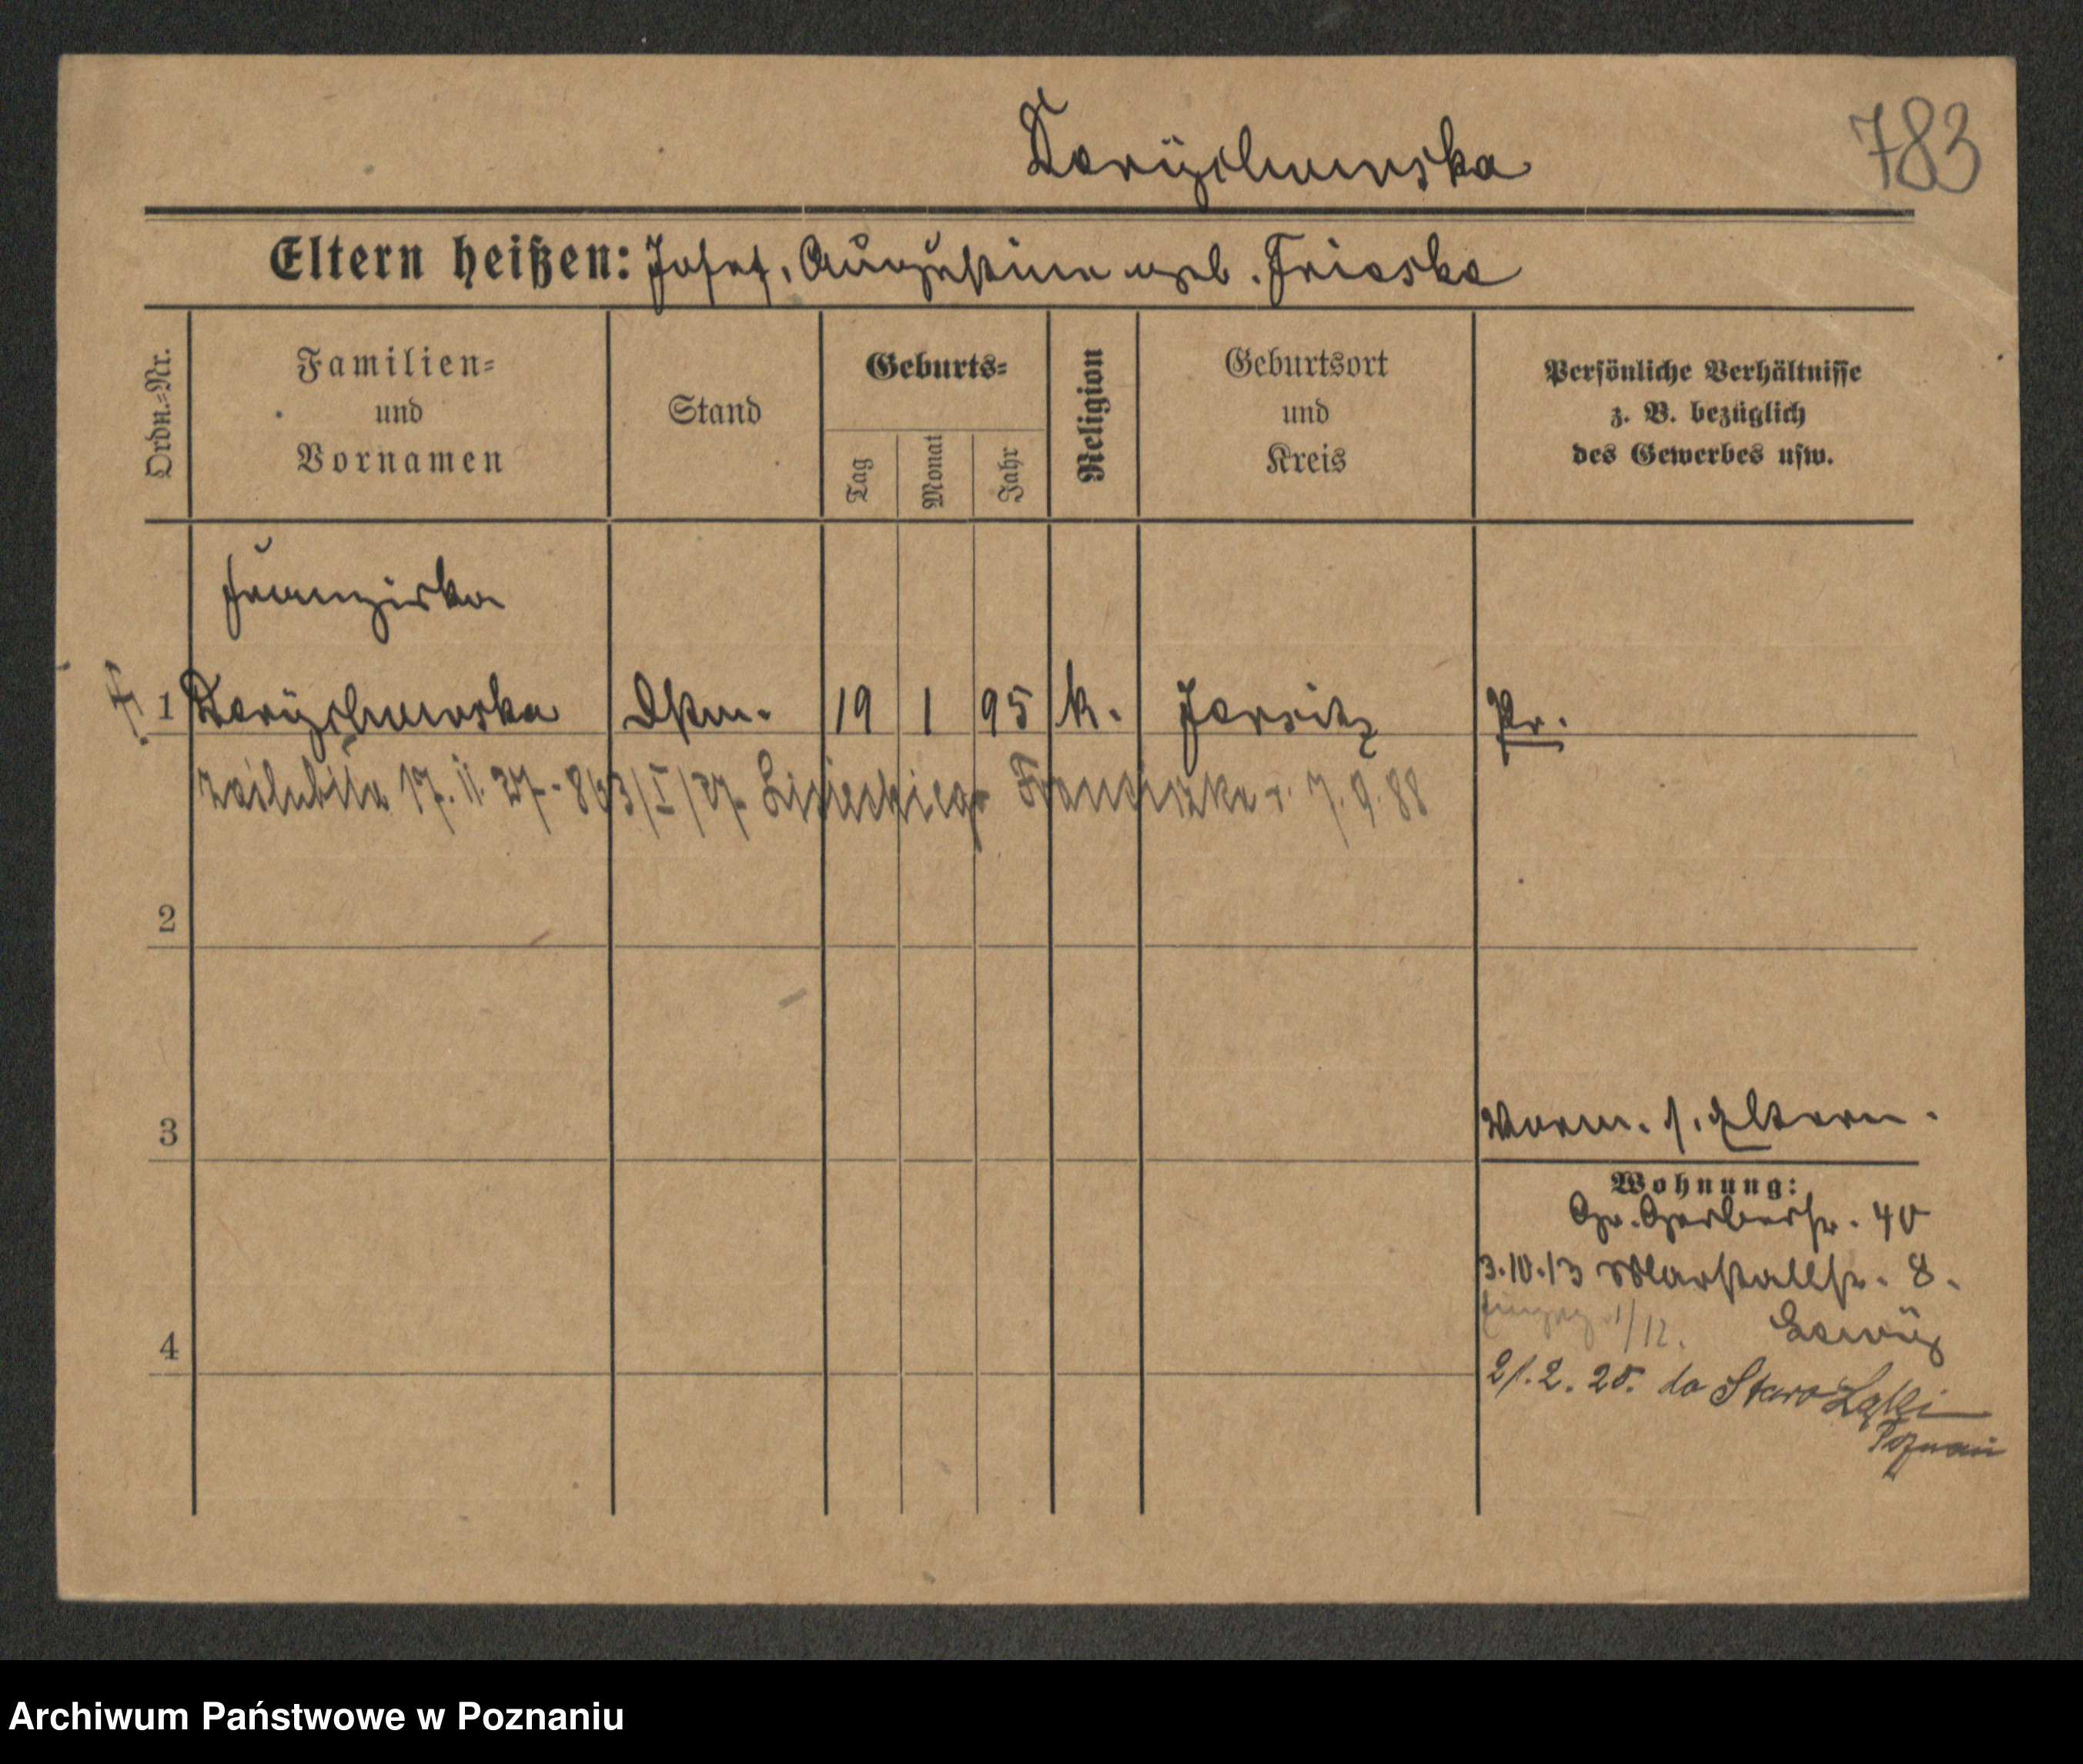 783
Eltern heißen: Josef, Augustine geb. Frieske
Ordn.-Nr.
Familien-
und
Vornamen
Stand
Geburts-
Tag
Monat
Jahr
Religion
Geburtsort
und
Kreis
Persönliche Verhältnisse
z. B. bezüglich
des Gewerbes usw.
Franziska
1 19 1 95 k. Jersitz Pr.
zaślubiła 17. II. 27 - 863/I/27 Lisieckiego Franciszka r. 7.9.88
2
3
Vorm. s. Eltern.
Wohnung:
Gr. Gerberstr. 40
3.10.13 Marstallstr. 8.
1/12.
4
21.2.25. do Staro Poznań
Archiwum Państwowe w Poznaniu